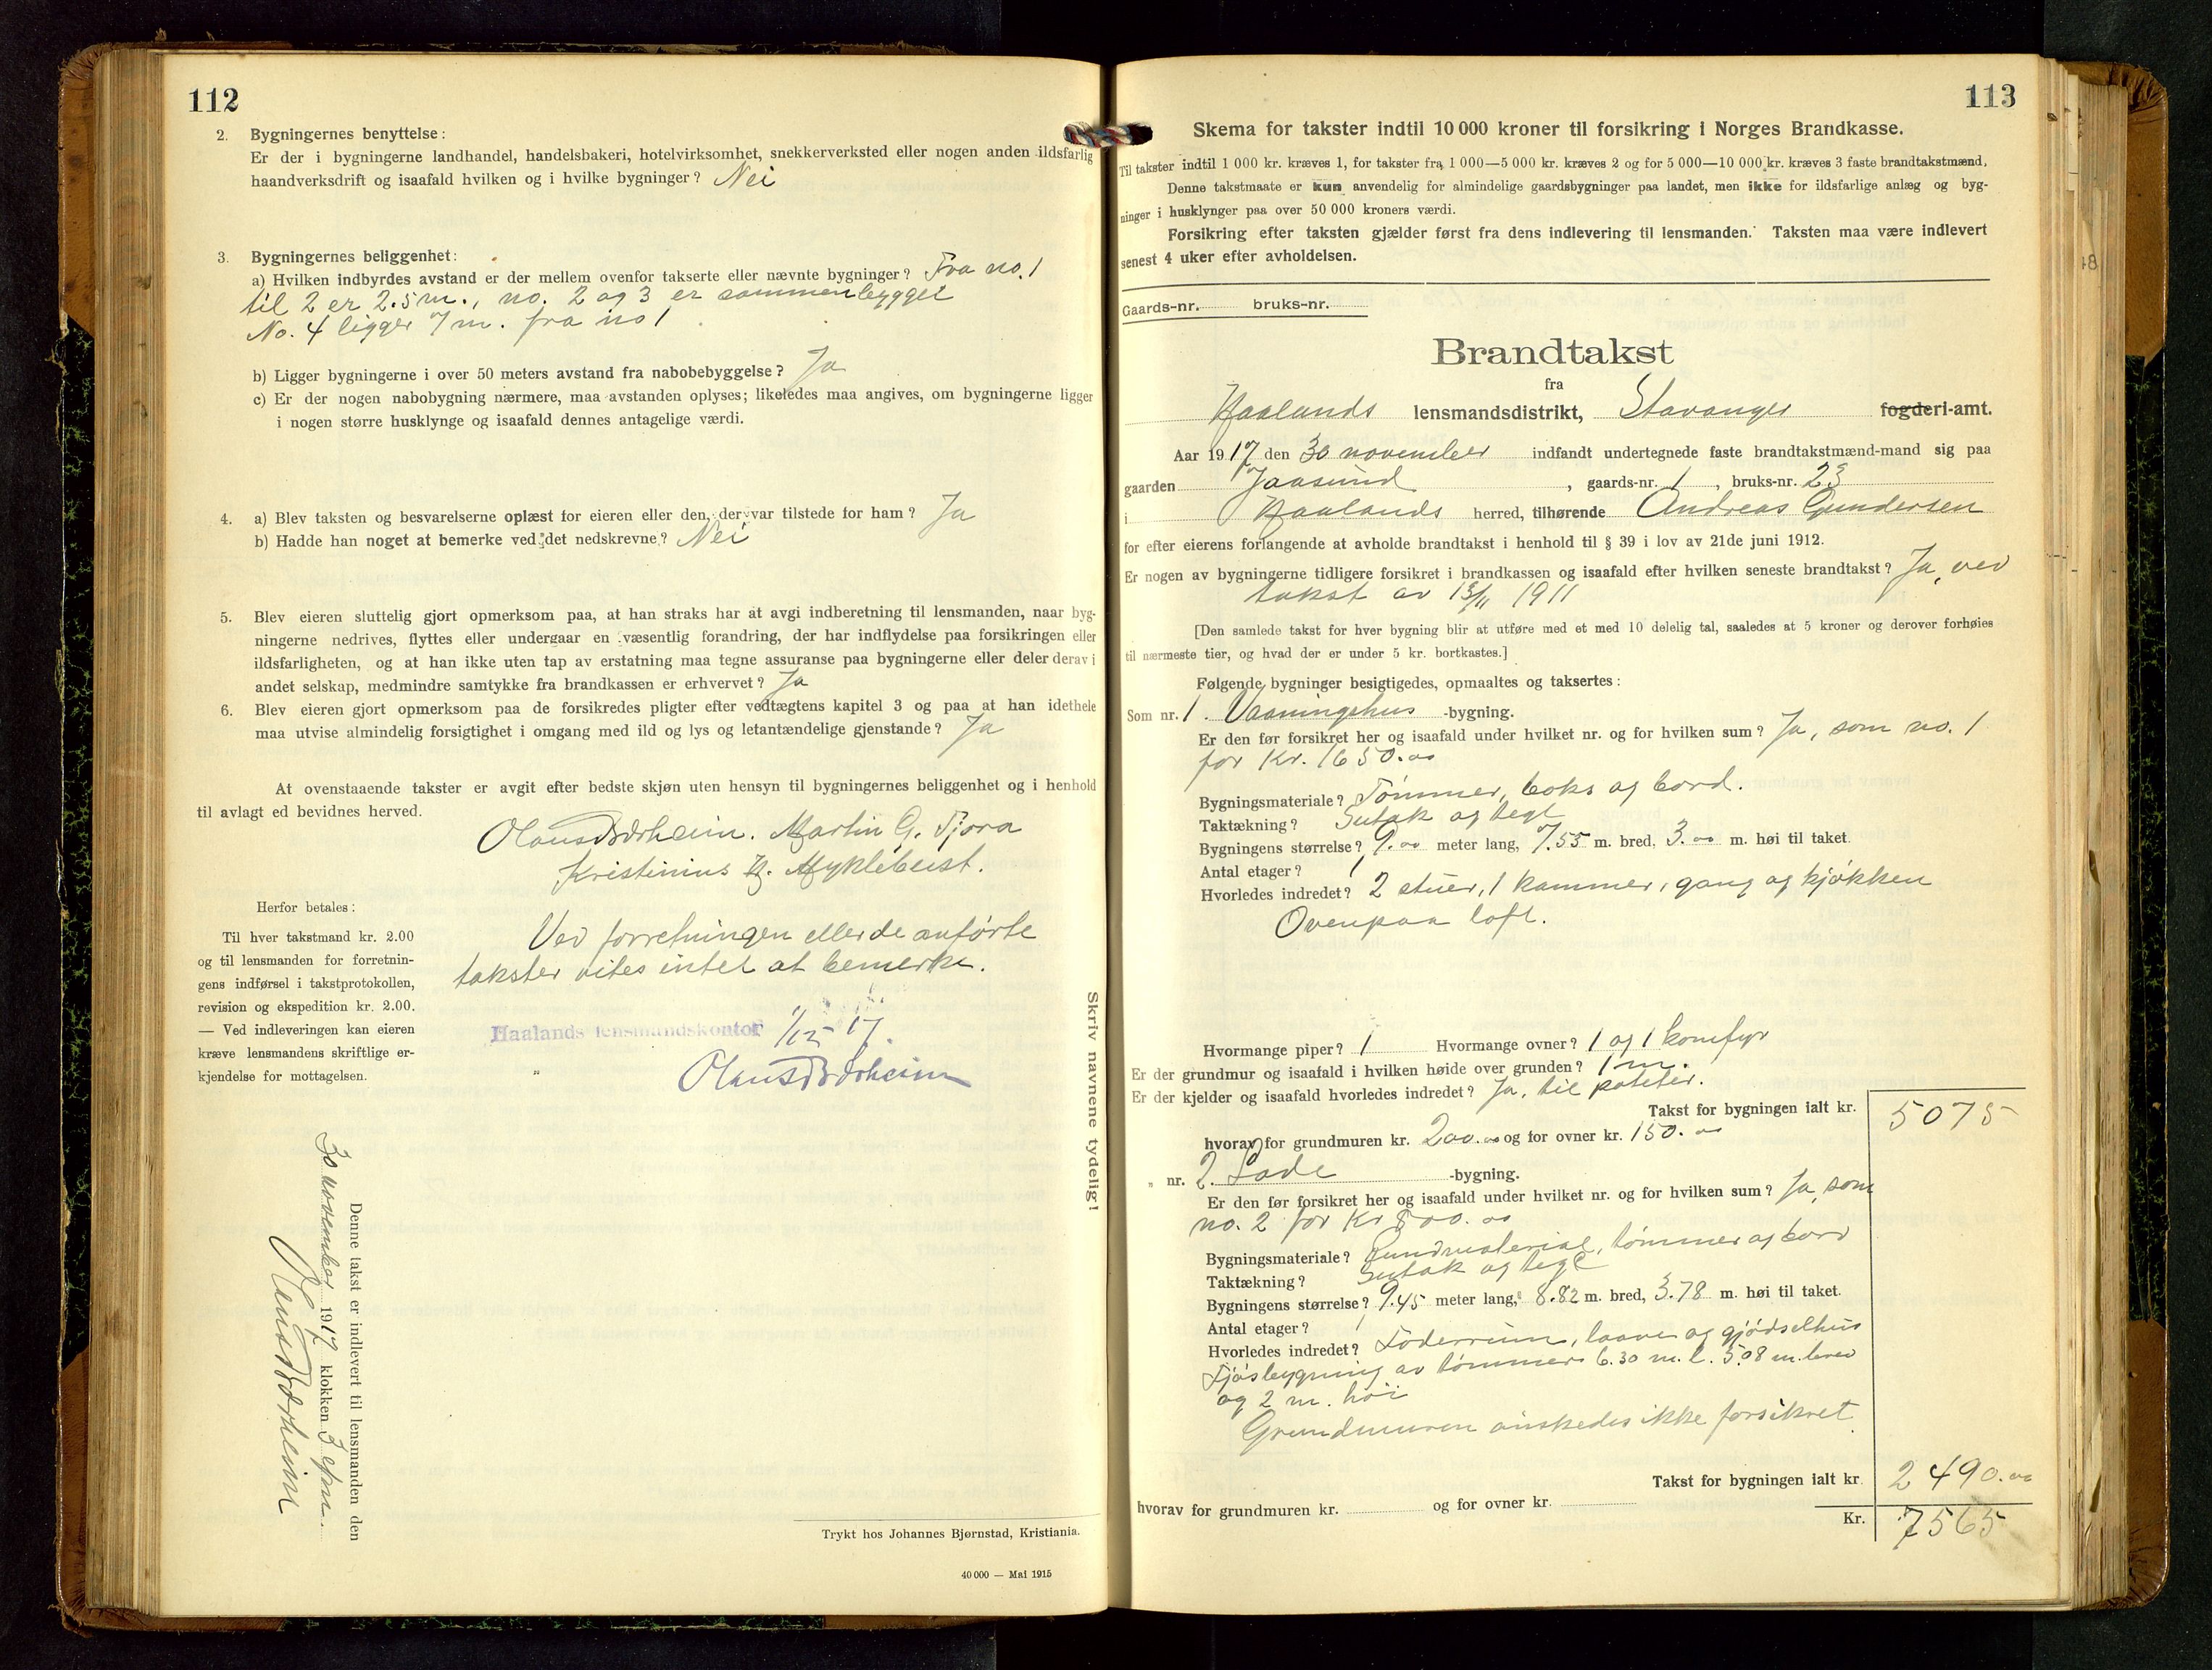 112
2. Bygningernes benyttelse:
Er der i bygningerne landhandel, handelsbakeri, hotelvirksomhet, snekkerverksted eller nogen anden ildsfarlig
haandverksdrift og isaafald hvilken og i hvilke bygninger? Nei
3. Bygningernes beliggenhet:
a) Hvilken indbyrdes avstand er der mellem ovenfor takserte eller nævnte bygninger? Fra no. 1
til 2 er 2.5 m., no. 2 og 3 er sammenbygget
No. 4 ligger 7 m. fra no 1
b) Ligger bygningerne i over 50 meters avstand fra nabobebyggelse? Ja
c) Er der nogen nabobygning nærmere, maa avstanden oplyses; likeledes maa angives, om bygningerne ligger
i nogen større husklynge og isaafald dennes antagelige værdi.
4. a) Blev taksten og besvarelserne oplæst for eieren eller den, der var tilstede for ham? Ja
b) Hadde han noget at bemerke ved det nedskrevne? Nei
5. Blev eieren sluttelig gjort opmerksom paa, at han straks har at avgi indberetning til lensmanden, naar byg-
ningerne nedrives, flyttes eller undergaar en væsentlig forandring, der har indflydelse paa forsikringen eller
ildsfarligheten, og at han ikke uten tap av erstatning maa tegne assuranse paa bygningerne eller deler derav i
andet selskap, medmindre samtykke fra brandkassen er erhvervet? Ja
6. Blev eieren gjort opmerksom paa de forsikredes pligter efter vedtægtens kapitel 3 og paa at han idethele
maa utvise almindelig forsigtighet i omgang med ild og lys og letantændelige gjenstande? Ja
At ovenstaaende takster er avgit efter bedste skjøn uten hensyn til bygningernes beliggenhet og i henhold
til avlagt ed bevidnes herved.
Martin G. Tjora
Kristinius H. Myklebust.
Herfor betales:
Til hver takstmand kr. 2.00
og til lensmanden for forretnin-
gens indførsel i takstprotokollen,
revision og ekspedition kr. 2.00.
— Ved indleveringen kan eieren
kræve lensmandens skriftlige er-
kjendelse for mottagelsen.
Ved forretningen eller de anførte
takster vites intet at bemerke.
Haalands lensmandskontor 1/12 17.
Skriv navnene tydelig!
Denne takst er indlevert til lensmanden den
30 november 1917 klokken 3 efm.
Trykt hos Johannes Bjørnstad, Kristiania.
40 000 — Mai 1915
113
Skema for takster indtil 10 000 kroner til forsikring i Norges Brandkasse.
Til takster indtil 1 000 kr. kræves 1, for takster fra 1 000—5 000 kr. kræves 2 og for 5 000—10 000 kr. kræves 3 faste brandtakstmænd.
Denne takstmaate er kun anvendelig for almindelige gaardsbygninger paa landet, men ikke for ildsfarlige anlæg og byg-
ninger i husklynger paa over 50 000 kroners værdi.
Forsikring efter taksten gjælder først fra dens indlevering til lensmanden. Taksten maa være indlevert
senest 4 uker efter avholdelsen.
Gaards-nr. bruks-nr.
Brandtakst
fra
Haalands lensmandsdistrikt, Stavanger fogderi-amt.
Aar 1917 den 30 november indfandt undertegnede faste brandtakstmænd-mand sig paa
gaarden Jaasund, gaards-nr. 1, bruks-nr. 23
i Haalands herred, tilhørende Andreas Gundersen
for efter eierens forlangende at avholde brandtakst i henhold til § 39 i lov av 21de juni 1912.
Er nogen av bygningerne tidligere forsikret i brandkassen og isaafald efter hvilken seneste brandtakst? Ja, ved
takst av 13/11 1911
[Den samlede takst for hver bygning blir at utføre med et med 10 delelig tal, saaledes at 5 kroner og derover forhøies
til nærmeste tier, og hvad der er under 5 kr. bortkastes.]
Følgende bygninger besigtigedes, opmaaltes og taksertes:
Som nr. 1. Vaaningshus -bygning.
Er den før forsikret her og isaafald under hvilket nr. og for hvilken sum? Ja, som no. 1
for Kr. 1650.00
Bygningsmateriale? Tømmer, boks og bord.
Taktækning? Sutak og tegl
Bygningens størrelse? 9.00 meter lang, 7.55 m. bred, 3.00 m. høi til taket.
Antal etager? 1
Hvorledes indredet? 2 stuer, 1 kammer, gang og kjøkken
Ovenpaa loft.
Hvormange piper? 1 Hvormange ovner? 1 og 1 komfyr
Er der grundmur og isaafald i hvilken høide over grunden? 1 m.
Er der kjelder og isaafald hvorledes indredet? Ja, til poteter.
Takst for bygningen ialt kr. 5075
hvorav for grundmuren kr. 200.00 og for ovner kr. 150.00
" nr. 2. Lade -bygning.
Er den før forsikret her og isaafald under hvilket nr. og for hvilken sum? Ja, som
no. 2 for Kr 800.00
Bygningsmateriale? Rundmateriale, tømmer og bord
Taktækning? Sutak og tegl
Bygningens størrelse? 9.45 meter lang, 8.82 m. bred, 3.78 m. høi til taket.
Antal etager? 1
Hvorledes indredet? Foderrum, laave og gjødselhus
Fjøsbygning av tømmer 6.30 m. l. 5.08 m. bred
og 2 m. høi
Grundmuren ønskedes ikke forsikret
Takst for bygningen ialt kr. 2490.00
hvorav for grundmuren kr. og for ovner kr.
Kr. 7565